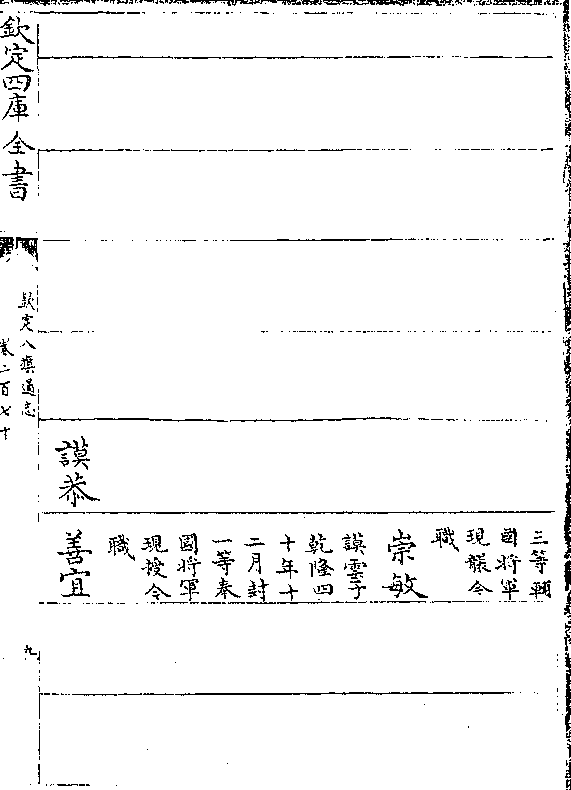 三等輔
國将軍
現襲令
職
崇敏
謨雲子
乾隆四
十年十
二月封
一等奉
國將軍
現授令
職
謨恭
善宜
欽定四庫全書
欽定八旗通志
卷二百七十
九